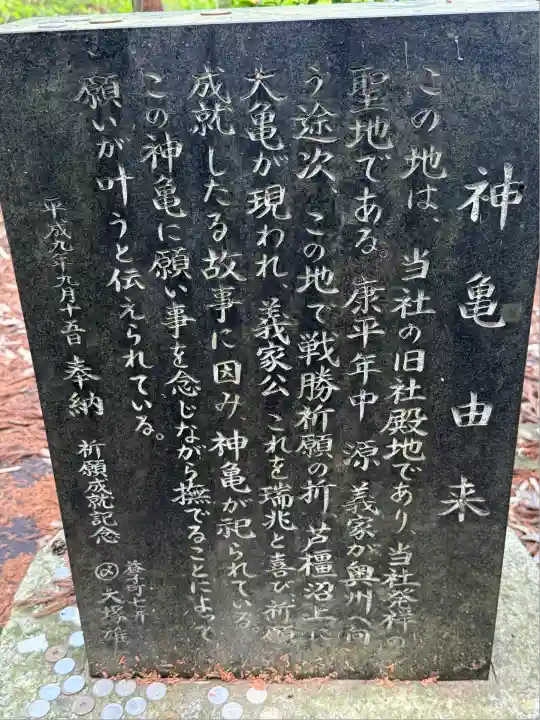 神亀由来
この地は、当社の旧社殿地であり、当社発祥の
聖地である。康平年中 源義家が奥州へ向
う途次、この地で戦勝祈願の折、芦橿沼上に
大亀が現われ、義家公これを瑞兆と喜び、祈願
成就したる故事に因み、神亀が祀られている。
この神亀に願い事を念じながら撫でることによって
願いが叶うと伝えられている。
平成九年九月十五日 奉納 祈願成就記念
益子町七井
大塚雄